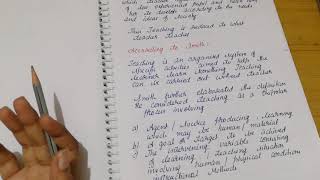 of the experienced
has to develop according to the needs
and ideas of society
Thus Teaching is reduced to what
teacher teaches
According to Smith:
Teaching is an organised system of
specific activities aimed to help the
learner learn something. Teaching
can be carried out without teacher
Smith further elaborated the definition
He considered teaching as a tripolar
process involving
a) Agent / Source producing learning
which may be human, material
b) A goal or target to be achieved
c) The intervening variable consisting
of learning / teaching situation
involving human / physical condition
instructional methods